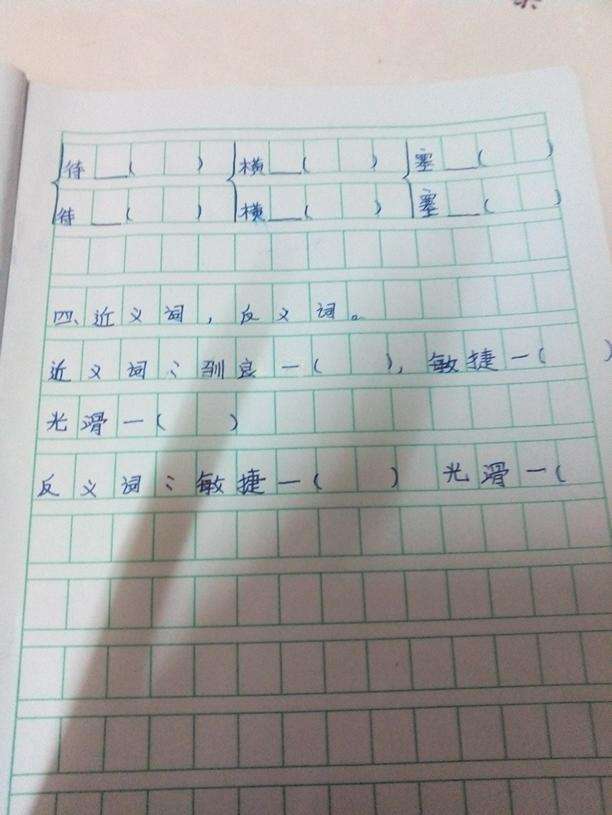 待__( ) 横__( ) 塞__( )
待__( ) 横__( ) 塞__( )
四、近义词，反义词。
近义词：驯良一( )，敏捷一( )
光滑一( )
反义词：敏捷一( ) 光滑一(